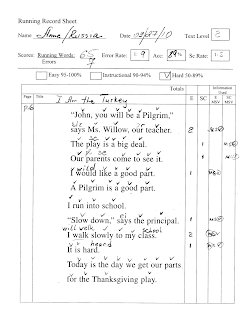 Running Record Sheet
Name Anna/Russia Date Text Level 2
Scores: Running Words: Error Rate: 1: 9 Acc: 89% Sc Rate: 1:
Errors 7
Easy 95-100% Instructional 90-94% ✓ Hard 50-89%
Totals Information Used
Page Title E SC E MSV SC MSV
I Am the Turkey
"John, you will be a Pilgrim,"
says Ms. Willow, our teacher. 2
The play is a big deal.
Our parents come to see it.
I would like a good part.
A Pilgrim is a good part.
I run into school.
"Slow down," says the principal.
will walk school
I walk slowly to my class. 2
heard
It is hard.
Today is the day we get our parts
for the Thanksgiving play.